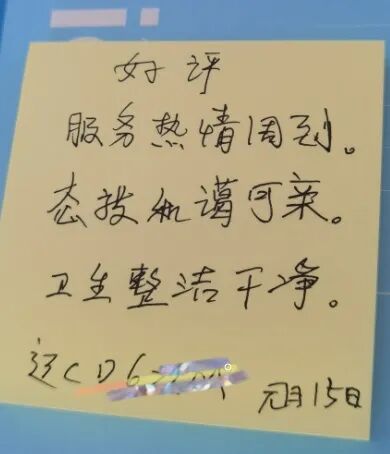 好评
服务热情周到。
态技和蔼可亲。
卫生整洁干净。
辽CD6
元月15日